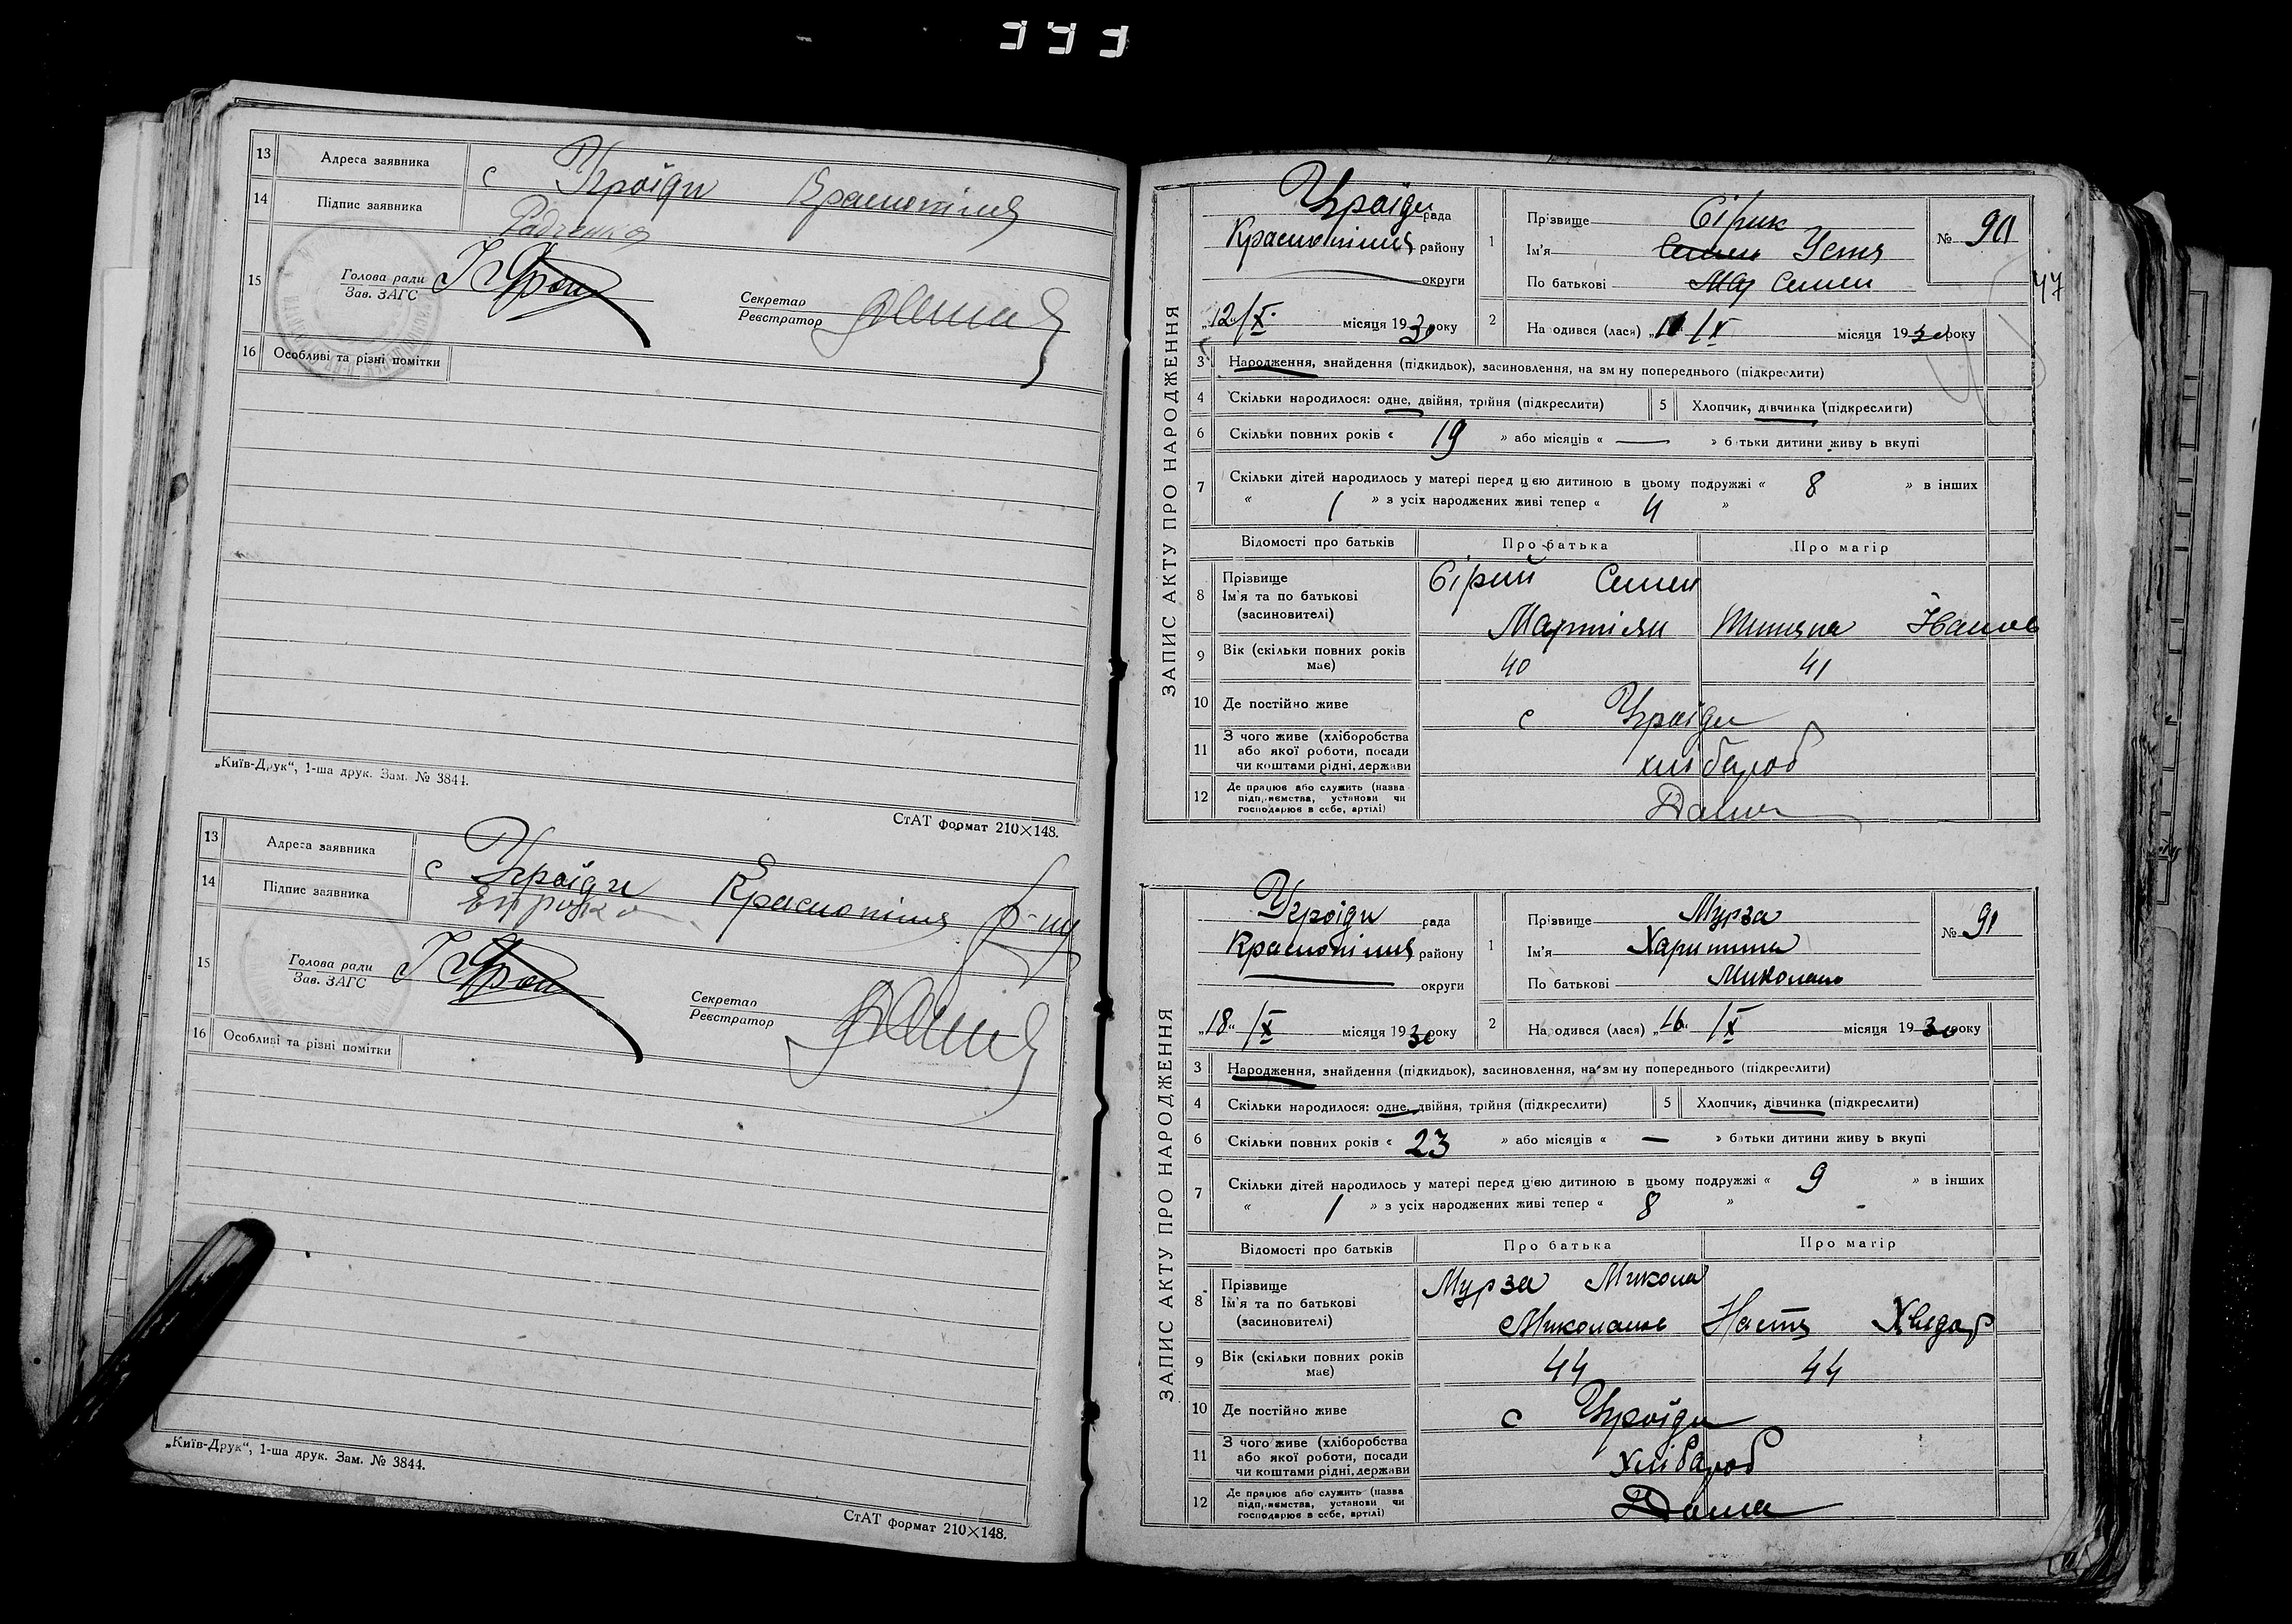 13 Адреса заявника с Угроїди Краснопілля
14 Підпис заявника Радченко
15 Голова ради
Зав. ЗАГС
Секретар
Реєстратор
16 Особливі та різні помітки
„Київ-Друк“, 1-ша друк. Зам. № 3844.
СтАТ формат 210×148.
13 Адреса заявника с Угроїди Краснопілля р-ну
14 Підпис заявника
15 Голова ради
Зав. ЗАГС
Секретар
Реєстратор
16 Особливі та різні помітки
„Київ-Друк“, 1-ша друк. Зам. № 3844.
СтАТ формат 210×148.
47
ЗАПИС АКТУ ПРО НАРОДЖЕННЯ
Угроїди рада
Краснопілля району
округи
„12“/X місяця 1930 року
1 Прізвище Сірик
Ім'я Семен Устя
По батькові Мар Семен
№ 90
2 Народився (лася) /X місяця 1930 року
3 Народження, знайдення (підкидьок), засиновлення, на зміну попереднього (підкреслити)
4 Скільки народилося: одне, двійня, трійня (підкреслити) 5 Хлопчик, дівчинка (підкреслити)
6 Скільки повних років « 19 » або місяців « — » батьки дитини живуть вкупі
7 Скільки дітей народилось у матері перед цією дитиною в цьому подружжі « 8 » в інших
« 1 » з усіх народжених живі тепер « 4 »
Відомості про батьків Про батька Про матір
8 Прізвище
Ім'я та по батькові
(засиновителі)
Сірий Семен
Мартіян
9 Вік (скільки повних років має) 40 41
10 Де постійно живе с Угроїди
11 З чого живе (хліборобства
або якої роботи, посади
чи коштами рідні, держави хлібороб
12 Де працює або служить (назва
підприємства, установи чи
господарює в себе, артілі) Дома
ЗАПИС АКТУ ПРО НАРОДЖЕННЯ
Угроїди рада
Краснопілля району
округи
„18“/X місяця 1930 року
1 Прізвище Мурза
Ім'я Харитина
По батькові Миколаїв
№ 91
2 Народився (лася) „16“ /X місяця 1930 року
3 Народження, знайдення (підкидьок), засиновлення, на зміну попереднього (підкреслити)
4 Скільки народилося: одне, двійня, трійня (підкреслити) 5 Хлопчик, дівчинка (підкреслити)
6 Скільки повних років « 23 » або місяців « — » батьки дитини живуть вкупі
7 Скільки дітей народилось у матері перед цією дитиною в цьому подружжі « 9 » в інших
« 1 » з усіх народжених живі тепер « 8 »
Відомості про батьків Про батька Про матір
8 Прізвище
Ім'я та по батькові
(засиновителі)
Мурза Микола
Миколаїв Настя Хведор
9 Вік (скільки повних років має) 44 44
10 Де постійно живе с Угроїди
11 З чого живе (хліборобства
або якої роботи, посади
чи коштами рідні, держави хлібароб
12 Де працює або служить (назва
підприємства, установи чи
господарює в себе, артілі) Дома